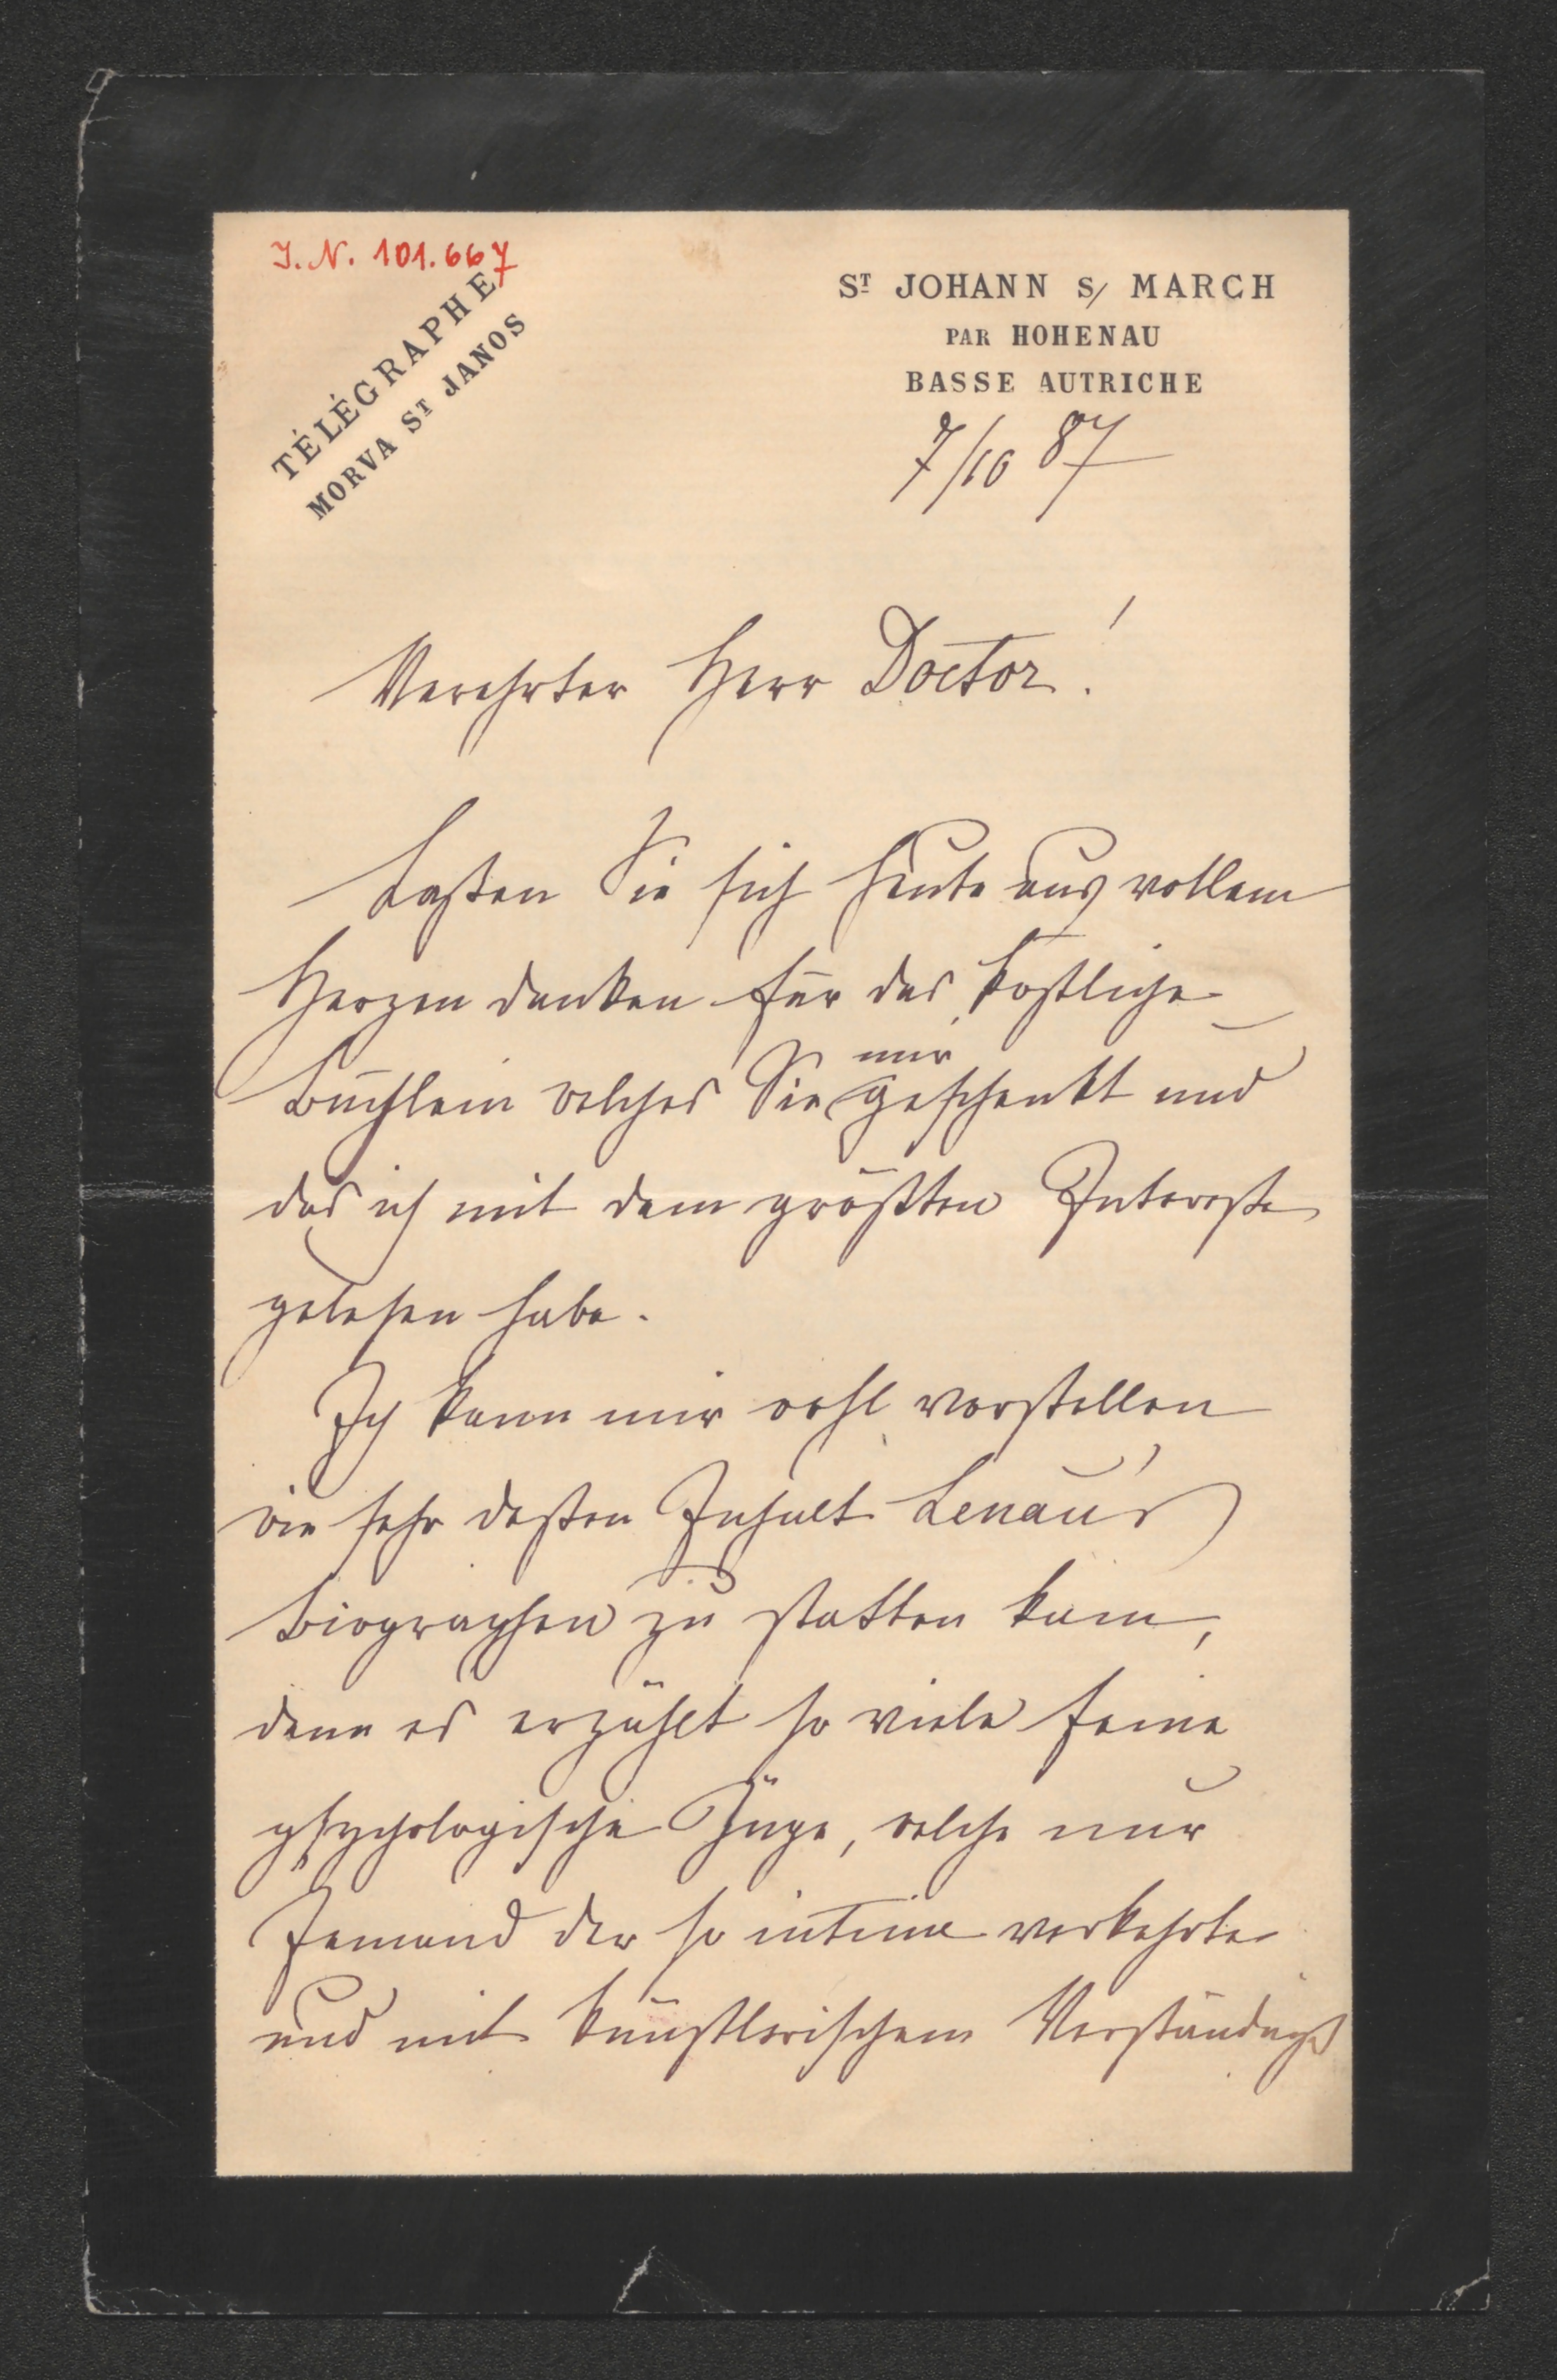 J. N. 101.667
TÉLÉGRAPHE
MORVA ST JANOS
ST JOHANN S/ MARCH
PAR HOHENAU
BASSE AUTRICHE
7/10 87
Verehrter Herr Doctor!
Laßen Sie sich heute aus vollem
Herzen danken für das köstliche
Büchlein welches Sie mir geschenkt und
das ich mit dem größten Intereße
gelesen habe.
Ich kann mir wohl vorstellen
wie sehr deßen Inhalt Lenau's
Biographen zu statten kam,
denn es erzählt so viele feine
psychologische Züge, welche nur
Jemand der so intim verkehrte
und mit künstlerischem Verständniß